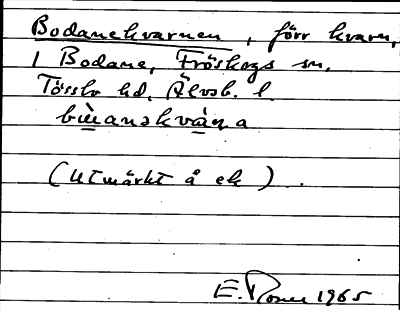 Bodanekvarnen, förr kvarn,
i Bodane, Fröskogs sn,
Tössbo hd. Älvsb. l.
(utmärkt å ek).
E. Rosen 1965